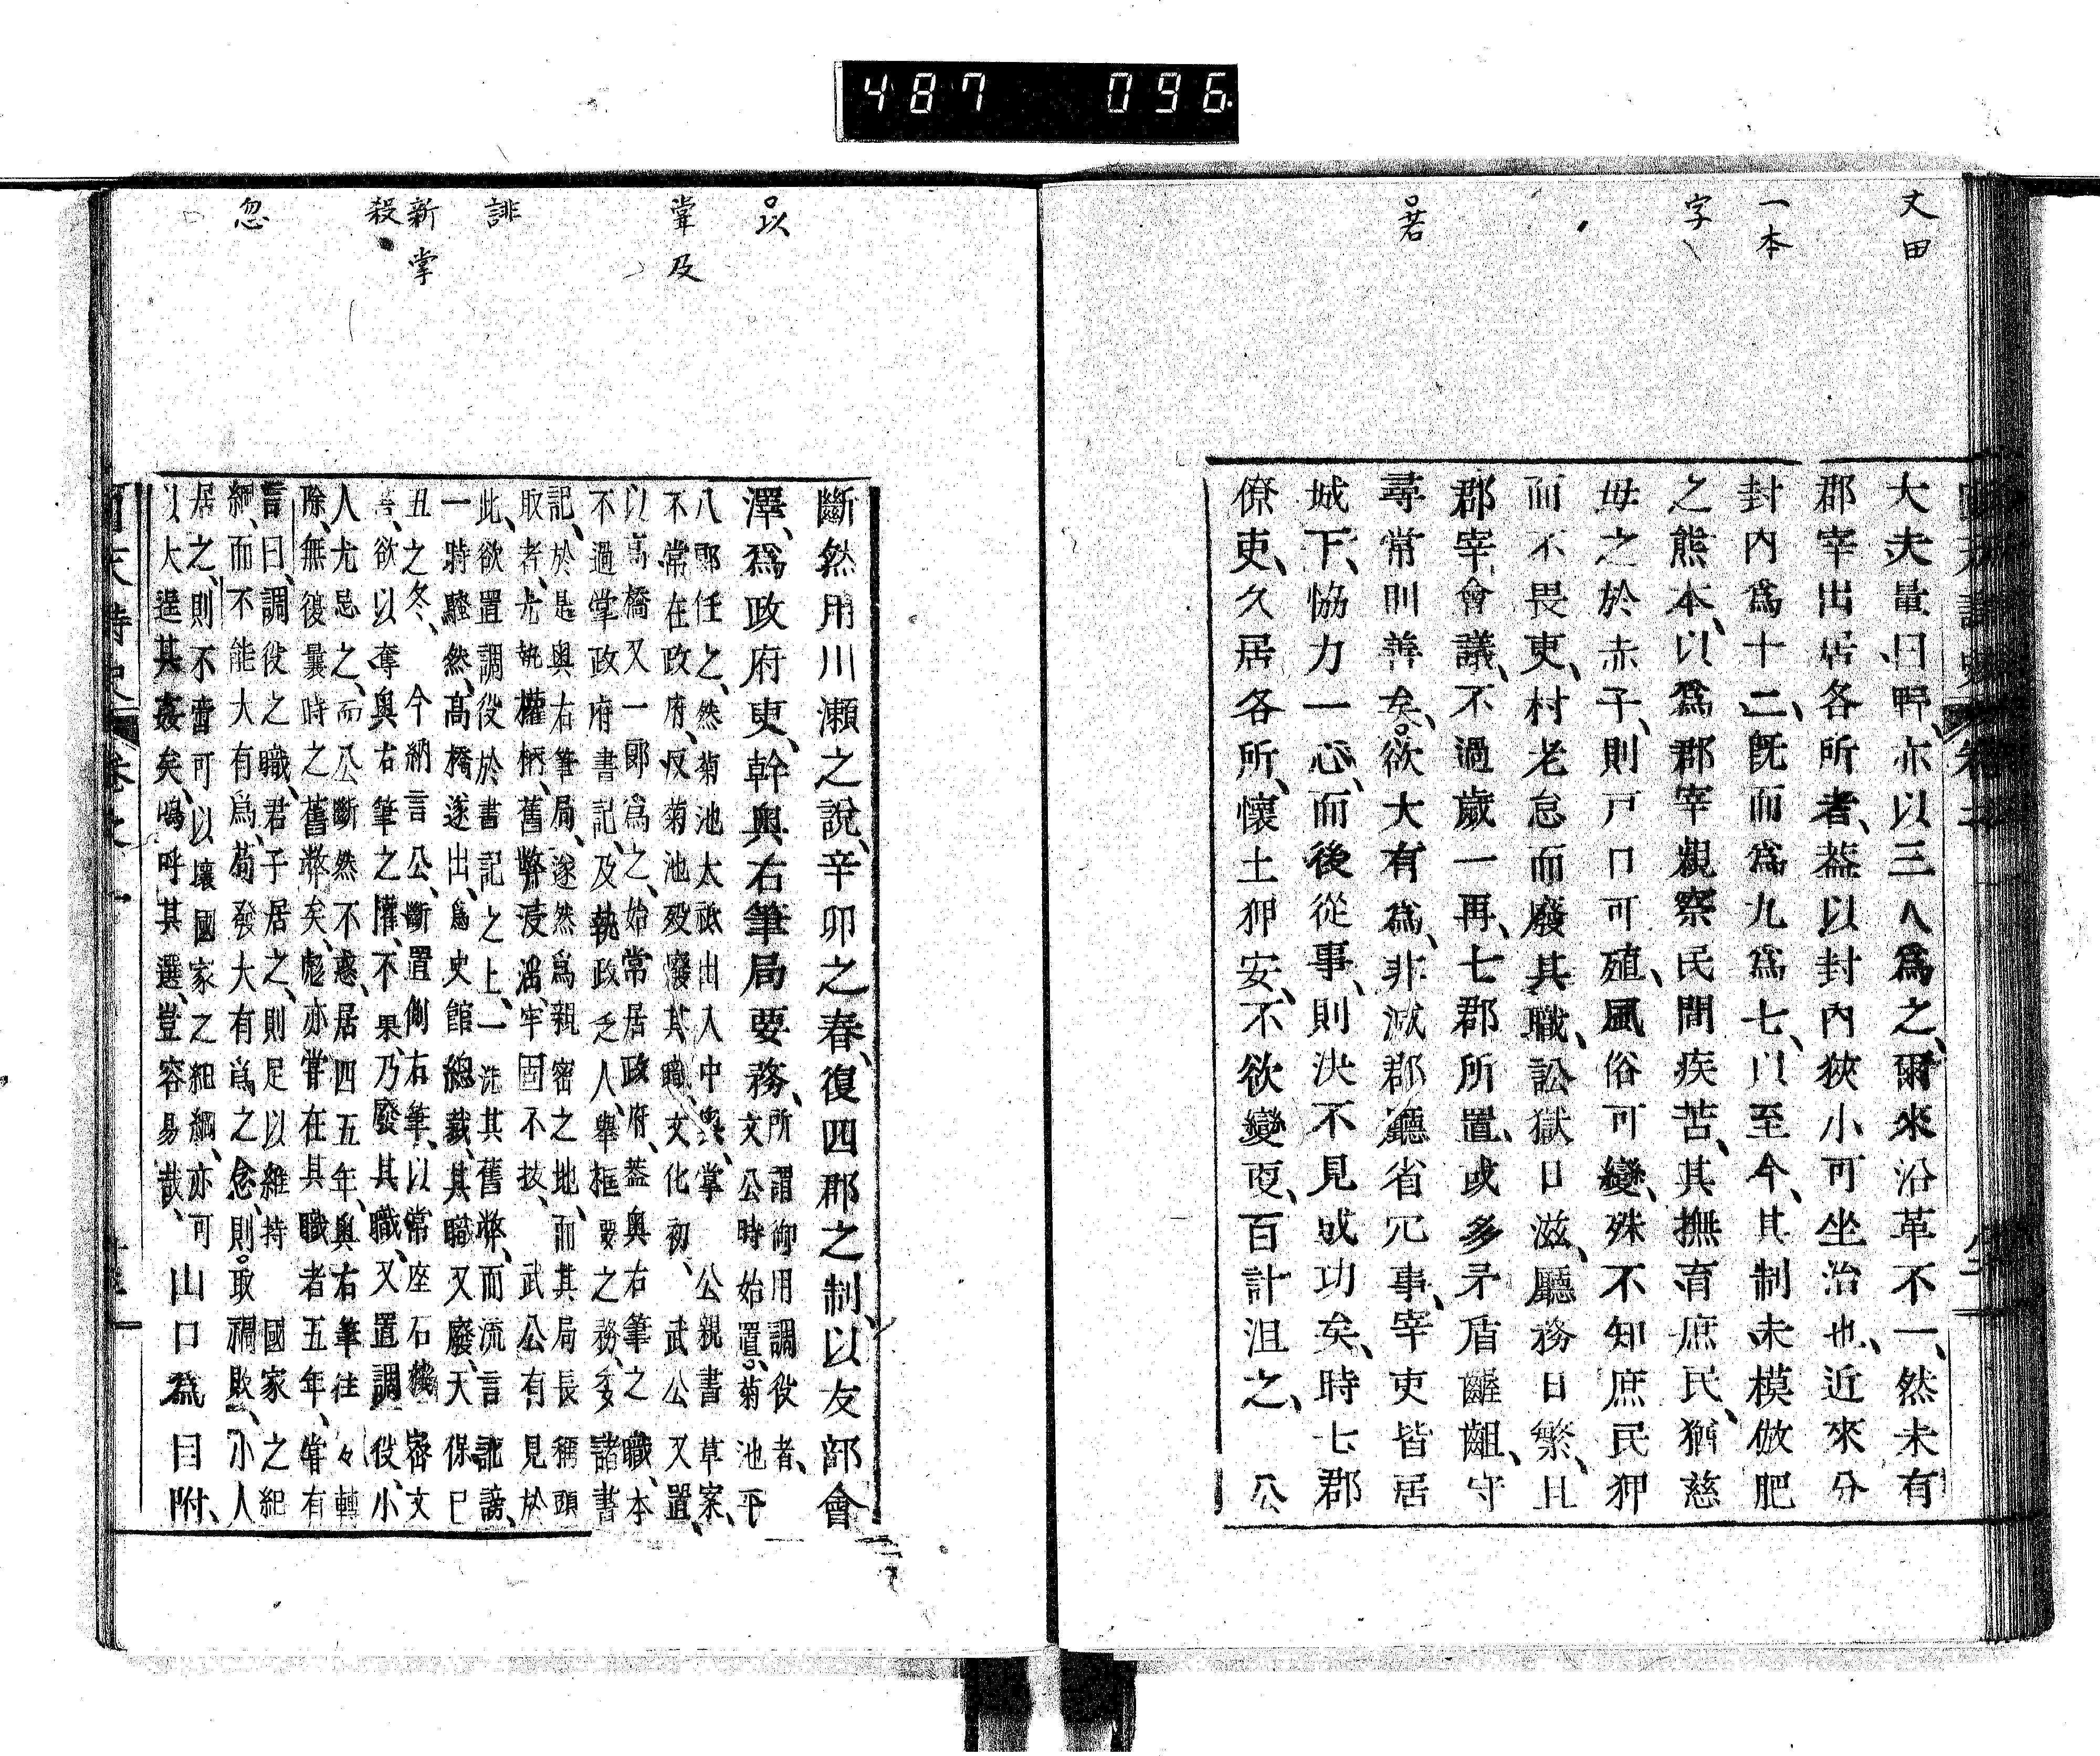 487 096
丈田
一本
字
若
大夫量曰、野、亦以三人爲之、爾來沿革不一、然未有
郡宰出居各所者、蓋以封內狹小可坐治也、近來分
封內爲十二、既而爲九爲七、以至今、其制未模倣肥
之熊本、以爲郡宰親察民間疾苦、其撫育庶民、猶慈
母之於赤子、則戸口可殖、風俗可變、殊不知庶民狎
而不畏吏、村老怠而廢其職、訟獄日滋、廳務日繁、且
郡宰會議、不過歲一再、七郡所置、或多矛盾齟齬、守
尋常則善矣、欲大有爲、非減郡廳省冗事、宰吏皆居
城下、恊力一心、而後從事、則決不見成功矣、時七郡
僚吏、久居各所、懷土狎安、不欲變更、百計沮之、 公
以
掌及
誹
新掌
殺
忽
斷然用川瀨之說、辛卯之春、復四郡之制、以友部會
澤、爲政府吏、幹與右筆局要務、
所謂御用調役者、
文公時始置、菊池平
八郎任之、然菊池太祇出入中奥、掌 公親書草案、
不常在政府、及菊池歿、廢其職、文化初、 武公又置、
以高橋又一郎爲之、始常居政府、蓋奥右筆之職、本
不過掌政府書記、及執政乏人、舉樞要之務、委諸書
記、於是奥右筆局、遂然爲親密之地、而其局長稱頭
取者、尤執權柄、舊弊浸涵、牢固不拔、 武公有見於
此、欲置調役於書記之上、一洗其舊弊、而流言訛謗、
一時騷然、高橋遂出、爲史館總裁、其職又廢、天保己
丑之冬、 今納言公、斷置側右筆、以常座右機密文
書、欲以奪奥右筆之權、不果、乃廢其職、又置調役、小
人尤忌之、而公斷然不惑、居四五年、奥右筆往々轉
除、無復曩時之舊弊矣、彪亦嘗在其職者五年、嘗有
言曰、調役之職、君子居之、則足以維持 國家之紀
綱、而不能大有爲、苟發大有爲之念、則取禍敗、小人
居之、則不啻可以壞國家之細綱、亦可
以大逞其姦矣、嗚呼其選豈容易哉、 山口爲目附、